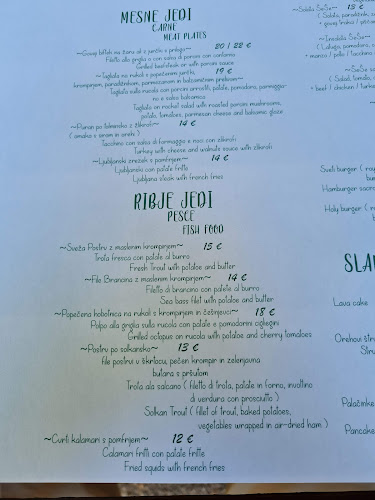 MESNE JEDI
CARNE
MEAT PLATES
20 / 22 €
Filetto alla griglia o con salsa di porcini con contorno
Grilled beefsteak or with porcini sauce
~Tagliata na rukoli s popečenimi jurčki, 19 €
krompirjem, paradižnikom, parmezanom in balzamičnim prelivom~
Tagliata sulla rucola con porcini arrostiti, patate, pomodoro, parmiggiano e salsa balsamica
Tagliata on rocket salad with roasted porcini mushrooms,
potato, tomatoes, parmesan cheese and balsamic glaze
14 €
Tacchino con salsa di formaggio e noci con
Turkey with cheese and walnuts sauce with
~Ljubljanski zrezek s pomfrijem~ 14 €
Ljubljanski con patate fritte
Ljubljana steak with french fries
RIBJE JEDI
PESCE
FISH FOOD
~Sveža Postrv z maslenim krompirjem~ 15 €
Trota fresca con patate al burro
Fresh Trout with potatoe and butter
~File Brancina z maslenim krompirjem~ 14 €
Filetto di brancino con patate al burro
Sea bass filet with potatoe and butter
~Popečena hobotnica na rukoli s krompirjem in češnjevci~ 18 €
Polpo alla griglia sulla rucola con patate e pomodorini ciglegini
Grilled octopus on rucola with potatoe and cherry tomatoes
~Postrv po solkansko~ 13 €
file postrvi v škrlocu, pečen krompir in zelenjavna
butara s pršutom
Trota ala salcano ( filetto di trota, patate in forno, involtino
di verdura con prosciutto )
Solkan Trout ( fillet of trout, baked potatoes,
vegetables wrapped in air-dried ham )
~Cvrti kalamari s pomfrijem~ 12 €
Calamari fritti con patate fritte
Fried squids with french fries
13 €
Sveti burger (
Hamburger
Holy burger (
SLA
Lava cake
Orehovi
Palačinke
Pancake